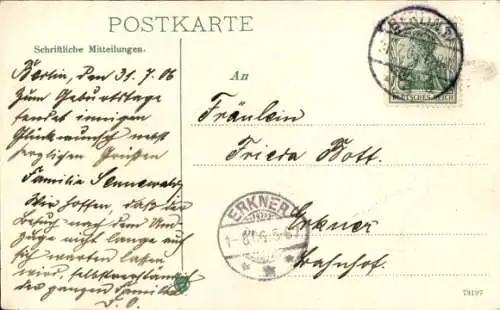 POSTKARTE
Schriftliche Mitteilungen.
Berlin, den 31.7.06
Zum Geburtstage
sendet innigen
Glückwunsch nebst
herzlichen Grüßen
Familie Sennewald
Wir hoffen, daß der
Besuch nach dem Um-
zuge nicht lange auf
sich warten lassen
wird, selbstverständlich
der ganzen Familie
An
Fräulein
Frieda Bott.
Erkner
Bahnhof.
BERLIN
DEUTSCHES REICH
ERKNER
79197